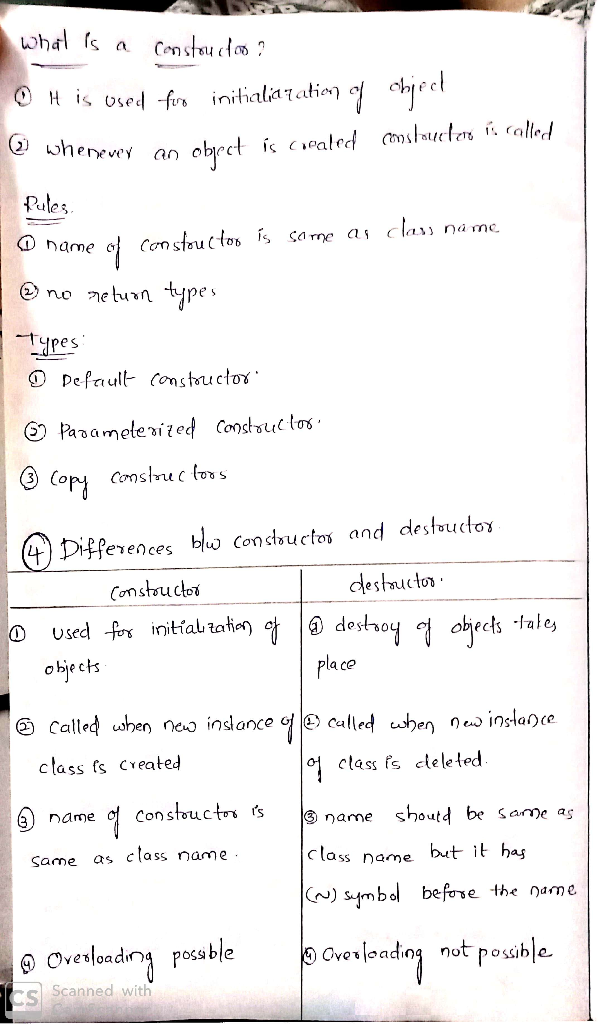 What is a constructor ?
① It is used for initialiazation of object
② whenever an object is created constructor is called
Rules.
① name of constructor is same as class name
② no return types
Types:
① Default constructor.
② Parameterized constructor.
③ Copy constructors
④ Differences b/w constructor and destructor.
constructor
destructor.
① used for initialization of
objects
① destroy of objects takes
place
② called when new instance of
class is created
② called when new instance
of class is deleted.
③ name of constructor is
same as class name.
③ name should be same as
class name but it has
(~) symbol before the name
④ Overloading possible
④ Overloading not possible
CS Scanned with